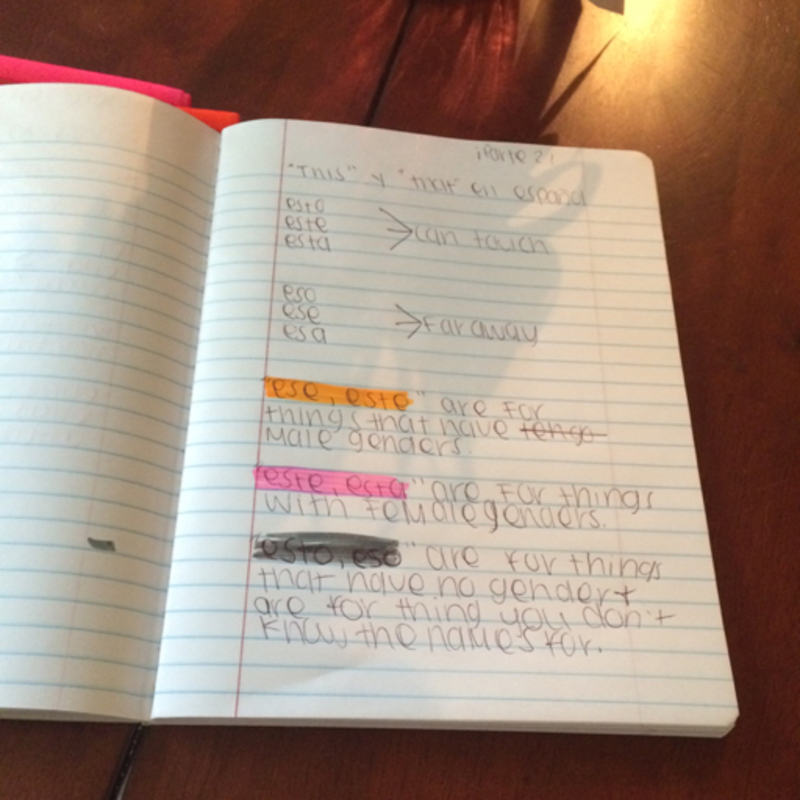 ¡Parte 2!
"This" y "that" en español
esto
este
esta
>can touch
eso
ese
esa
>Far away
"ese, este" are for
things that have tengo
male genders.
"este, esta" are for things
with female genders.
"esto, eso" are for things
that have no gender +
are for thing you don't
know the names for.